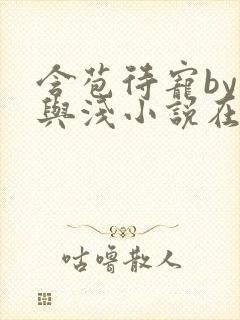 含苞待寵by
與淺小說在
咕嚕散人